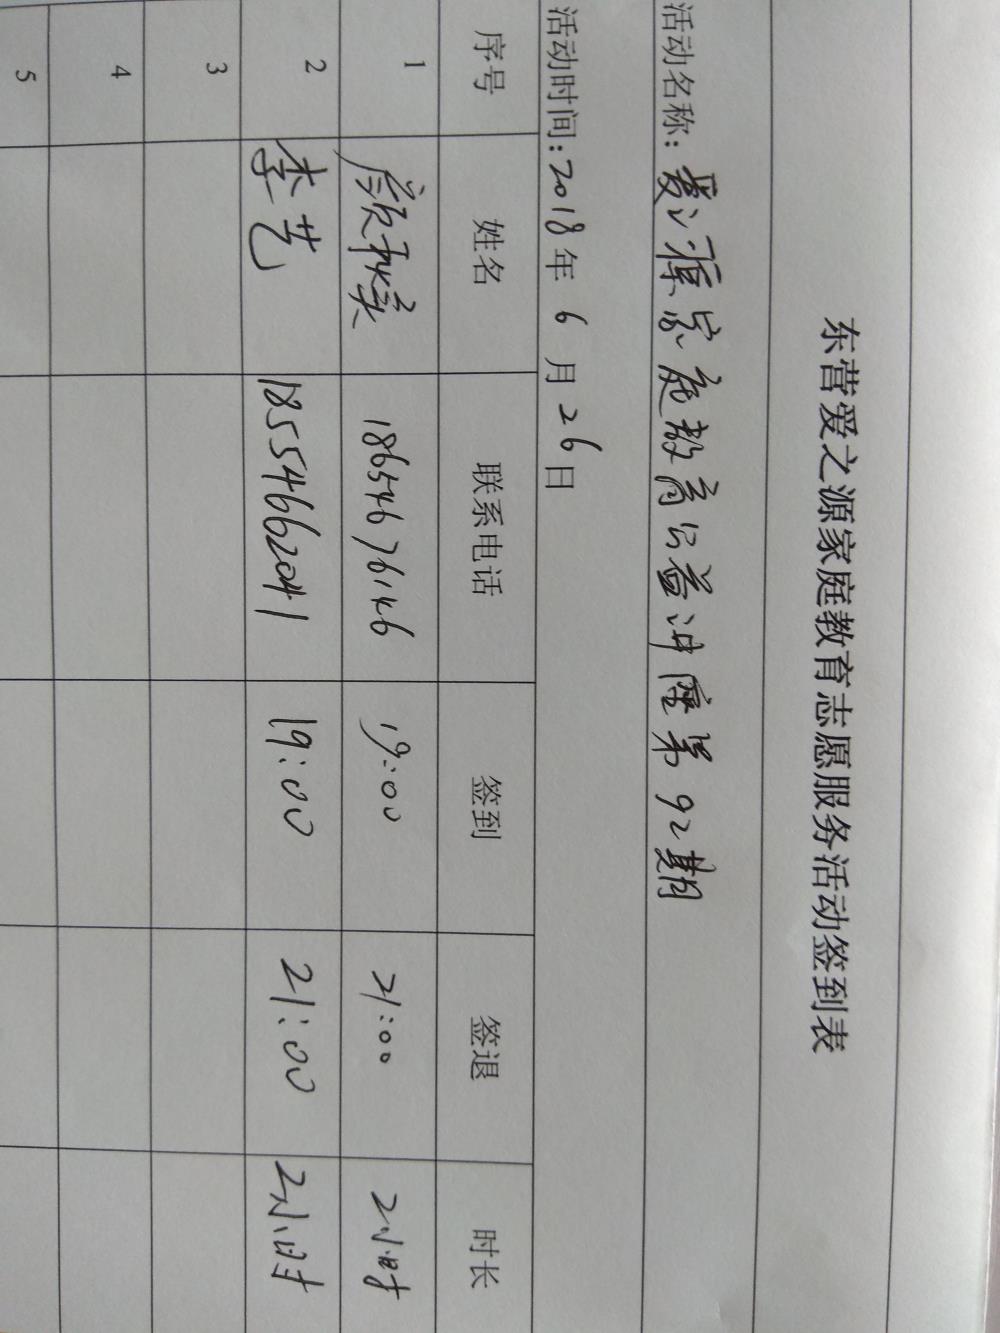 东营爱之源家庭教育志愿服务活动签到表
活动名称：爱之源家庭教育公益讲座第92期
活动时间：2018年6月26日
序号 姓名 联系电话 签到 签退 时长
1 18654676146 19:00 21:00 2小时
2 李艺 18554662041 19:00 21:00 2小时
3
4
5